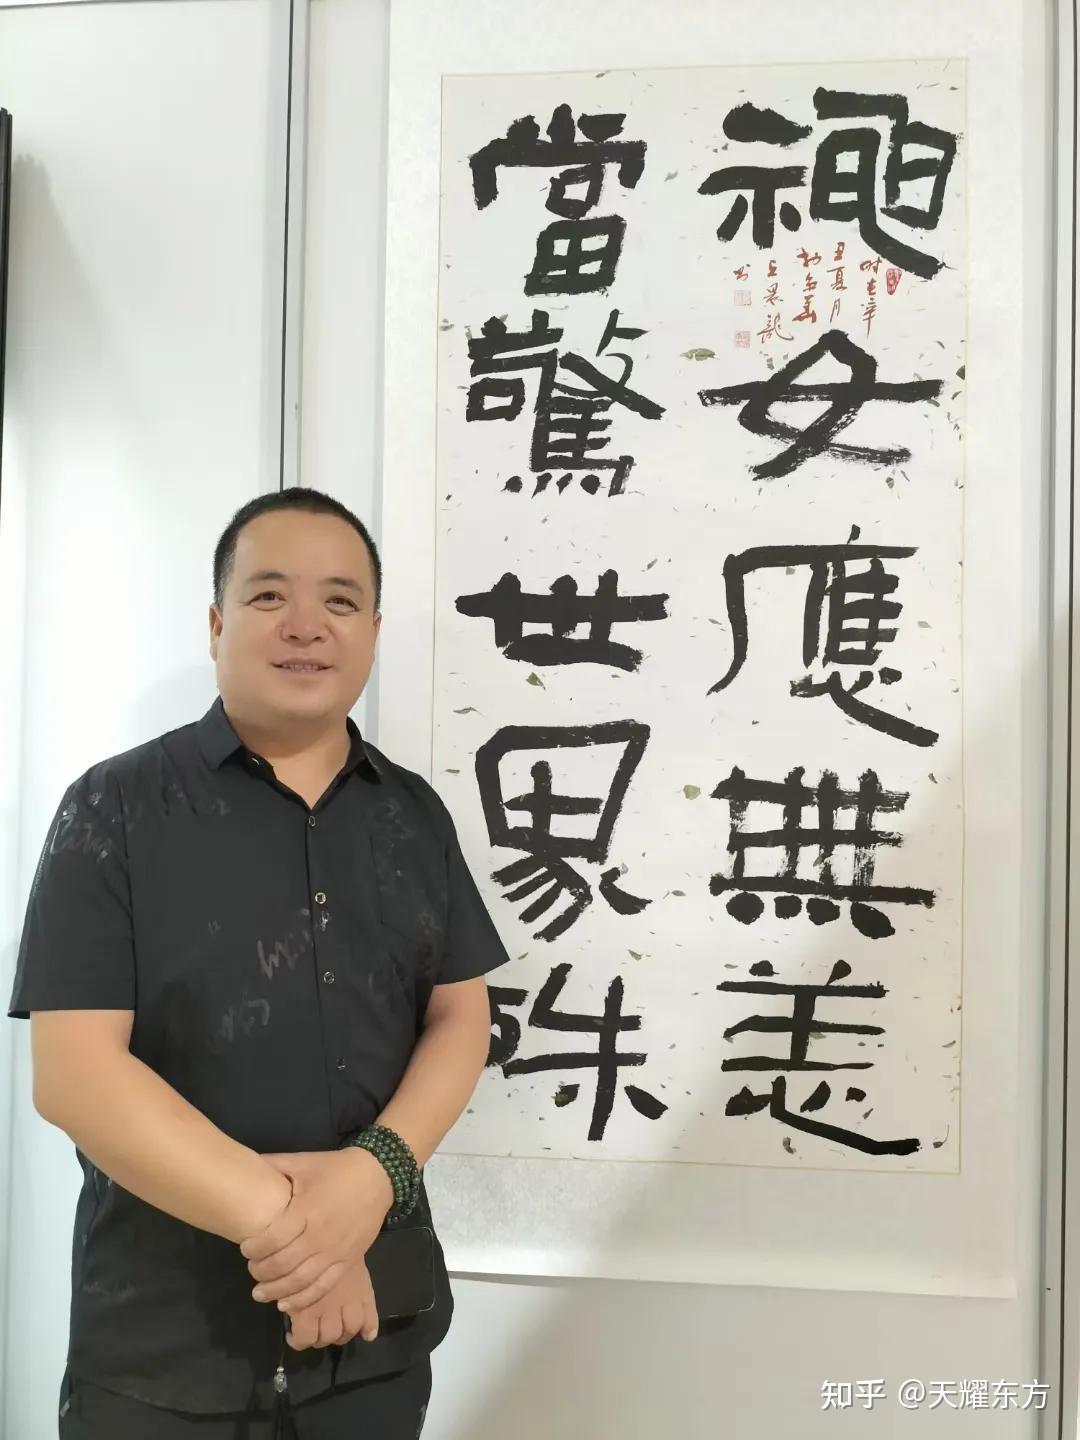 神女應無恙
當驚世界殊
时在辛
丑夏月
书
知乎 @天耀东方